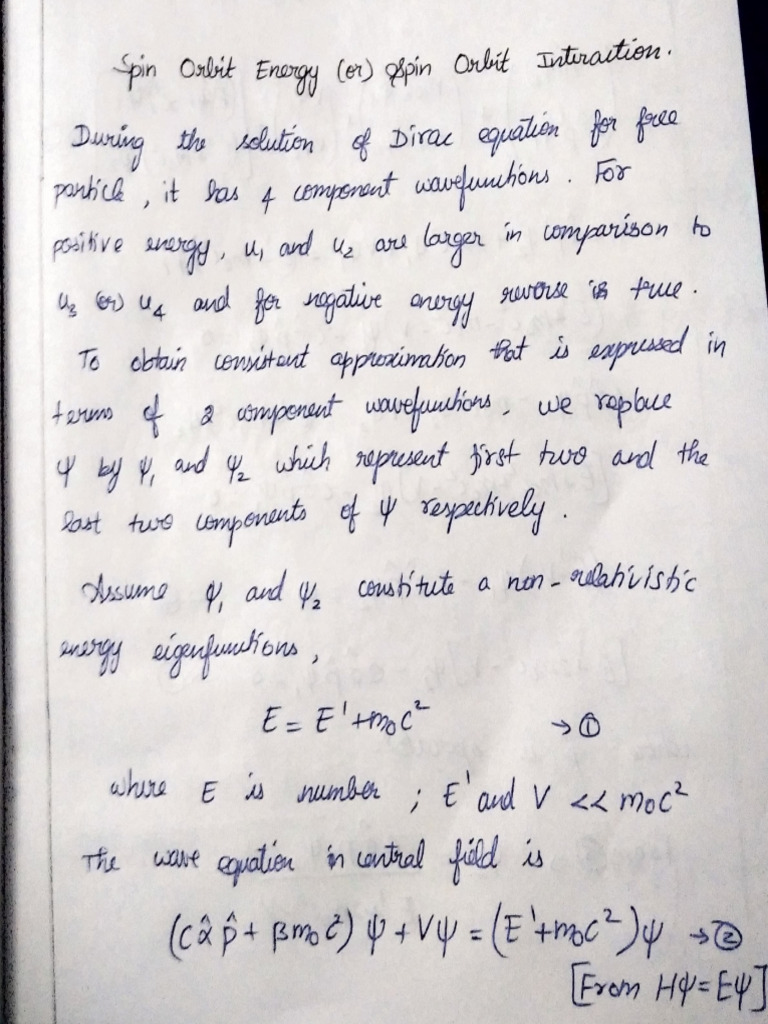 Spin Orbit Energy (or) Spin Orbit Interaction.
During the solution of Dirac equation for free
particle, it has 4 component wavefunctions. For
positive energy, u₁ and u₂ are larger in comparison to
u₃ (or) u₄ and for negative energy reverse is true.
To obtain consistent approximation that is expressed in
terms of 2 component wavefunctions, we replace
ψ by ψ₁ and ψ₂ which represent first two and the
last two components of ψ respectively.
Assume ψ₁ and ψ₂ constitute a non-relativistic
energy eigenfunctions,
E = E' + m₀c² → ①
where E is number ; E' and V << m₀c²
The wave equation in central field is
(cα̂ p̂ + βm₀c²) ψ + Vψ = (E' + m₀c²)ψ → ②
[From Hψ = Eψ]